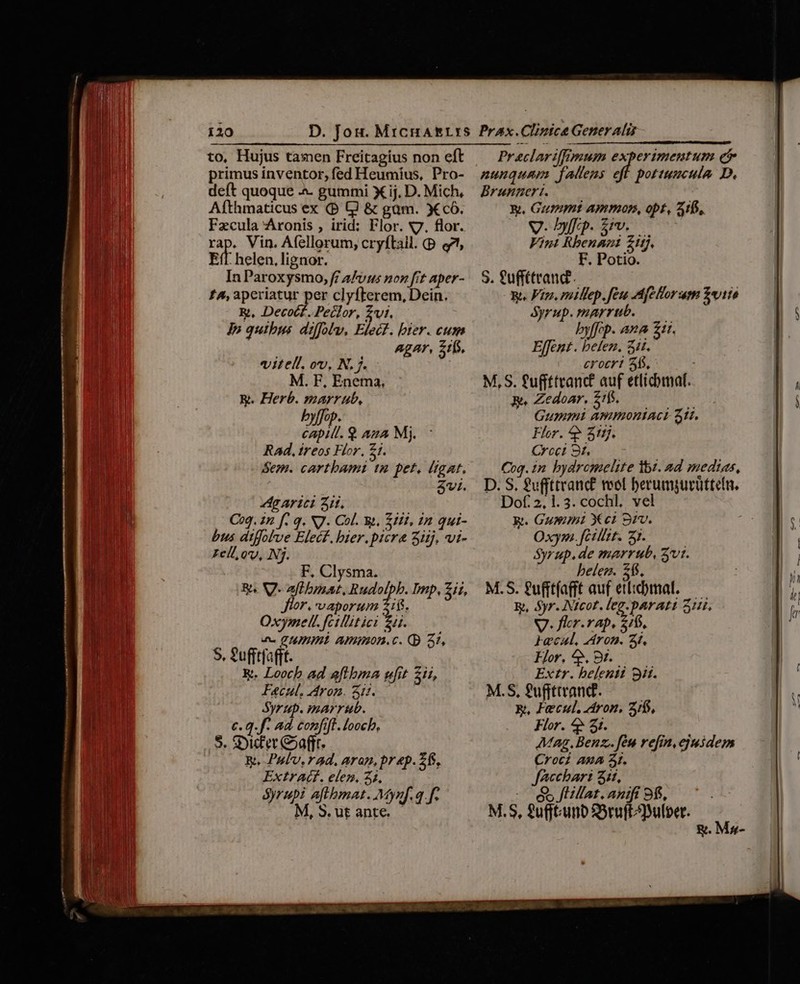 120 D. Joh. Michaelis Prax. Clinica Generalis
to, Hujus tamen Freitagius non est
primus inventor, sed Heumius, Pro-
dest quoque gummi ij. D. Mich,
Asthmaticus ex & gum.
Fæcula Aronis, irid: Flor. flor.
rap. Vin. Asellorum, crystall.
helen, lignor.
In Paroxysmo, si alvus non sit aper-
ta, aperiatur per clysterem, Dein.
℞. Decoct. Pector, ʒvi.
In quibus dissolv. Elect. hier. cum
agar, ʒiß.
vitell. ov. N. j.
M. F. Enema,
℞. Herb. marrub,
hyssop.
capill. ♀ ana Mj.
Rad. ireos Flor. ʒi.
Sem. carthami in pet. ligat.
ʒvi.
Agarici ʒii.
Coq. in s. q. 🜄. Col. ℞. ʒiii, in qui-
bus dissolve Elect. hier. picræ ʒiij, vi-
tell. ov, Nj.
F. Clysma.
℞. 🜄. asthmat, Rudolph. Imp. ʒii,
flor. vaporum ʒiß.
Oxymell. scillitici ʒii.
gummi ammon. c. ʒi,
S. Lufftsafft.
℞. Looch ad asthma usit ʒii,
Fæcul. Aron. ʒii.
Syrup. marrub.
c. q. s. ad consist. looch,
S. Dicker Safft.
℞. Pulv. rad. aron, præp. ʒß,
Extract. elen. ʒi.
Syrupi asthmat. Myns. q. s.
M, S. ut ante.
Præclarissimum experimentum &
nunquam fallens est potiuncula D.
Brunneri.
℞. Gummi ammon, opt, ʒiß,
🜄. hyssop. ʒiv.
Vini Rhenani ʒiij.
F. Potio.
S. Luffttranck.
℞. Vin. millep. seu Asellorum ʒviii
Syrup. marrub.
hyssop. ana ʒii.
Essent. helen. ʒii.
croceri ʒß,
M, S. Luffttranck auf etlichmal.
℞, Zedoar, ʒiß.
Gummi ammoniaci ʒii.
Flor. ʒiij.
Croci ℈i,
Coq. in hydromelite ℔i. ad medias,
D. S. Luffttranck wol herumzurütteln.
Dos. 2, l. 3. cochl. vel
℞. Gummi ci ℈iv.
Oxym. scillit. ʒi.
Syrup. de marrub, ʒvi.
helen. ʒß,
M. S. Lufftsafft auf etlichmal.
℞, Syr. Nicot. leg. parati ʒiii.
🜄. flor. rap. ʒiß,
Fæcul, Aron. ʒi,
Flor, ℈i.
Extr. helenii ℈ii.
M. S. Luffttranck.
℞, Fæcul. Aron, ʒiß,
Flor. ʒi.
Mag. Benz. seu resin, ejusdem
Croci ana ʒi.
sacchari ʒii,
stillat. anisi ℈ß,
M. S, Lufft-und Brust-Pulver.
℞. Ma-